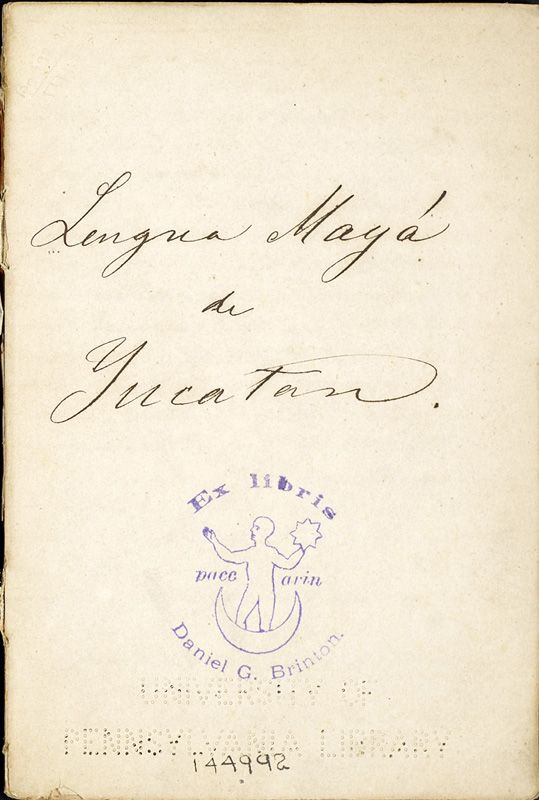 Lengua Mayá
de
Yucatan.
Ex libris
pace arin
Daniel G. Brinton.
UNIVERSITY OF
PENNSYLVANIA LIBRARY
144992